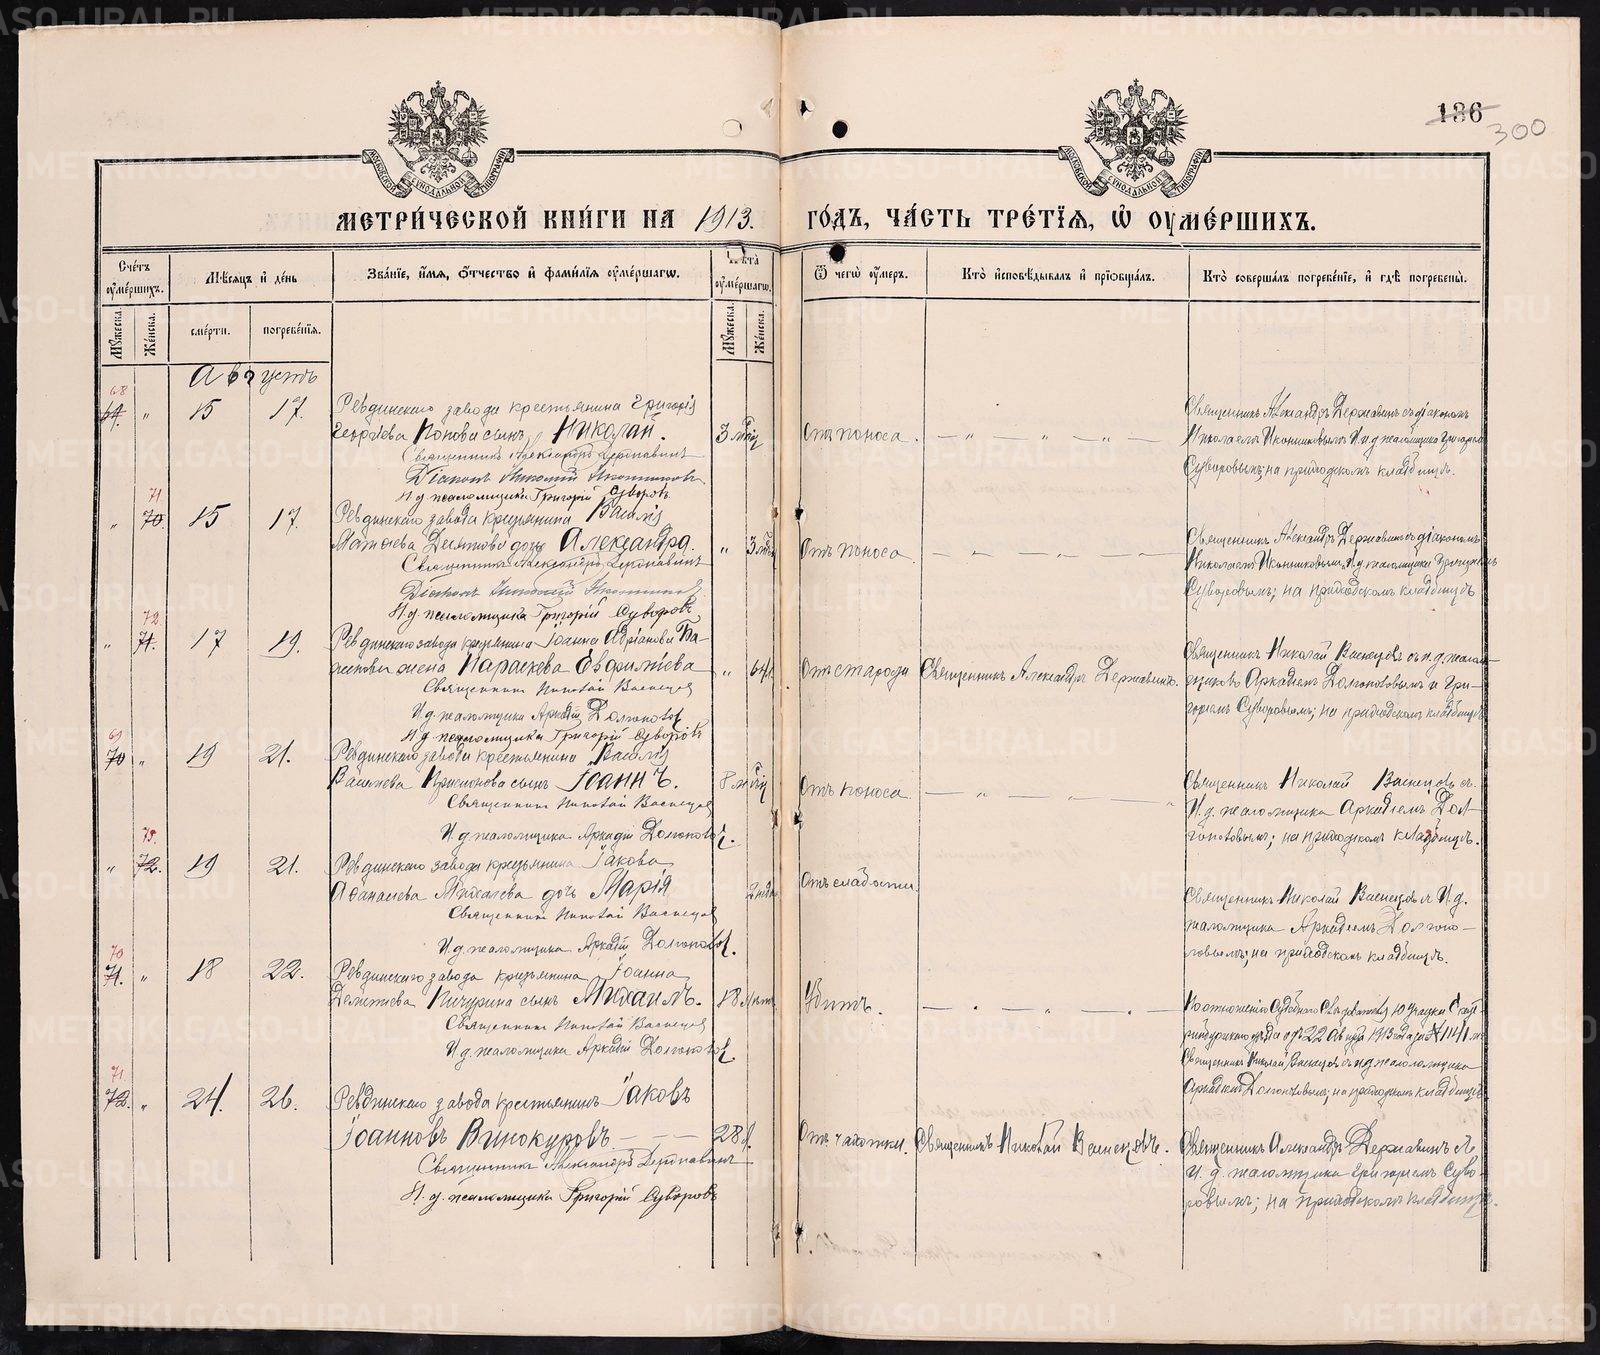 186
300
МЕТРИ́ЧЕСКОЙ КНИ́ГИ НА 1913. ГО́ДЪ, ЧА́СТЬ ТРЕ́ТІѦ, Ѡ҆ ОУМЕ́РШИХЪ.
Сче́тъ оу҆ме́ршихъ.
Мѣ́сяцъ и҆ де́нь
Зва́нїе, и҆́мя, ѻ҆́тчество и҆ фами́лїя оу҆ме́ршагѡ.
Лѣта̀ оу҆ме́ршагѡ.
Ѿ чегѡ̀ оу҆́меръ.
Кто̀ и҆сповѣ́дывалъ и҆ прїѡбща́лъ.
Кто̀ соверша́лъ погребе́нїе, и҆ гдѣ̀ погребены̀.
Мꙋ́жеска.
Же́нска.
сме́рти.
погребе́нїя.
Мꙋ́жеска.
Же́нска.
Августъ
68
69. " 15 17.
Ревдинскаго завода крестьянина Григорія
Георгіева Попова сынъ, Николай.
Священникъ Александръ Державинъ
Діаконъ Николай Иконниковъ
И. д. псаломщика Григорій Суворовъ
3 мѣсяц
Отъ поноса.
Священникъ Александръ Державинъ съ діакономъ
Николаемъ Иконниковымъ и и. д. псаломщика Григоріемъ
Суворовымъ; на приходскомъ кладбищѣ.
71
" 70. 15 17.
Ревдинскаго завода крестьянина Василія
дочь Александра.
Священникъ Александръ Державинъ
Діаконъ Николай Иконниковъ
И. д. псаломщика Григорій Суворовъ
" 3
Отъ поноса
Священникъ Александръ Державинъ съ діакономъ
Николаемъ Иконниковымъ и и. д. псаломщика Григоріемъ
Суворовымъ; на приходскомъ кладбищѣ
72
" 71. 17 19.
Ревдинскаго завода крестьянина Іоанна Адріанова
жена Параскева Евфиміева
Священникъ Николай Васнецов
И. д. псаломщика Аркадій
И. д. псаломщика Григорій Суворовъ
" 64
Отъ старости
Священникъ Александръ Державинъ.
Священникъ Николай Васнецовъ съ и. д. псалом-
щиковъ Аркадіемъ и Гри-
горіемъ Суворовымъ; на приходскомъ кладбищѣ
69
70 " 19 21.
Ревдинскаго завода крестьянина Василія
Васильева сынъ Іоаннъ.
Священникъ Николай Васнецов
И. д. псаломщика Аркадій
8
Отъ поноса
Священникъ Николай Васнецовъ съ
И. д. псаломщика Аркадіемъ
на приходскомъ кладбищѣ.
73.
" 72. 19 21.
Ревдинскаго завода крестьянина Іакова
Аѳанасіева Михалева дочь Марія
Священникъ Николай Васнецов
И. д. псаломщика Аркадій
2
Отъ слабости.
Священникъ Николай Васнецовъ И. д.
псаломщика Аркадіемъ
на приходскомъ кладбищѣ.
70
71. " 18 22.
Ревдинскаго завода крестьянина Іоанна
Дементіева Пичугина сынъ Михаилъ.
Священникъ Николай Васнецов
И. д. псаломщика Аркадій
18 лѣтъ
Убитъ.
По отношенію Судебнаго Слѣдователя 10 участка Екате-
ринбургскаго уѣзда отъ 22 августа 1913 года за № 1141
Священникъ Николай Васнецовъ съ и д псаломщика
Аркадіемъ на приходскомъ кладбищѣ
71
72. " 24. 26.
Ревдинскаго завода крестьянинъ Іаковъ
Іоанновъ Винокуровъ
Священникъ Александръ Державинъ
И. д. псаломщика Григорій Суворовъ
28
Отъ чахотки.
Священникъ Николай Васнецовъ.
Священникъ Александръ Державинъ съ
И. д. псаломщика Григоріемъ Суво-
ровымъ; на приходскомъ кладбищѣ.
METRIKI.GASO-URAL.RU